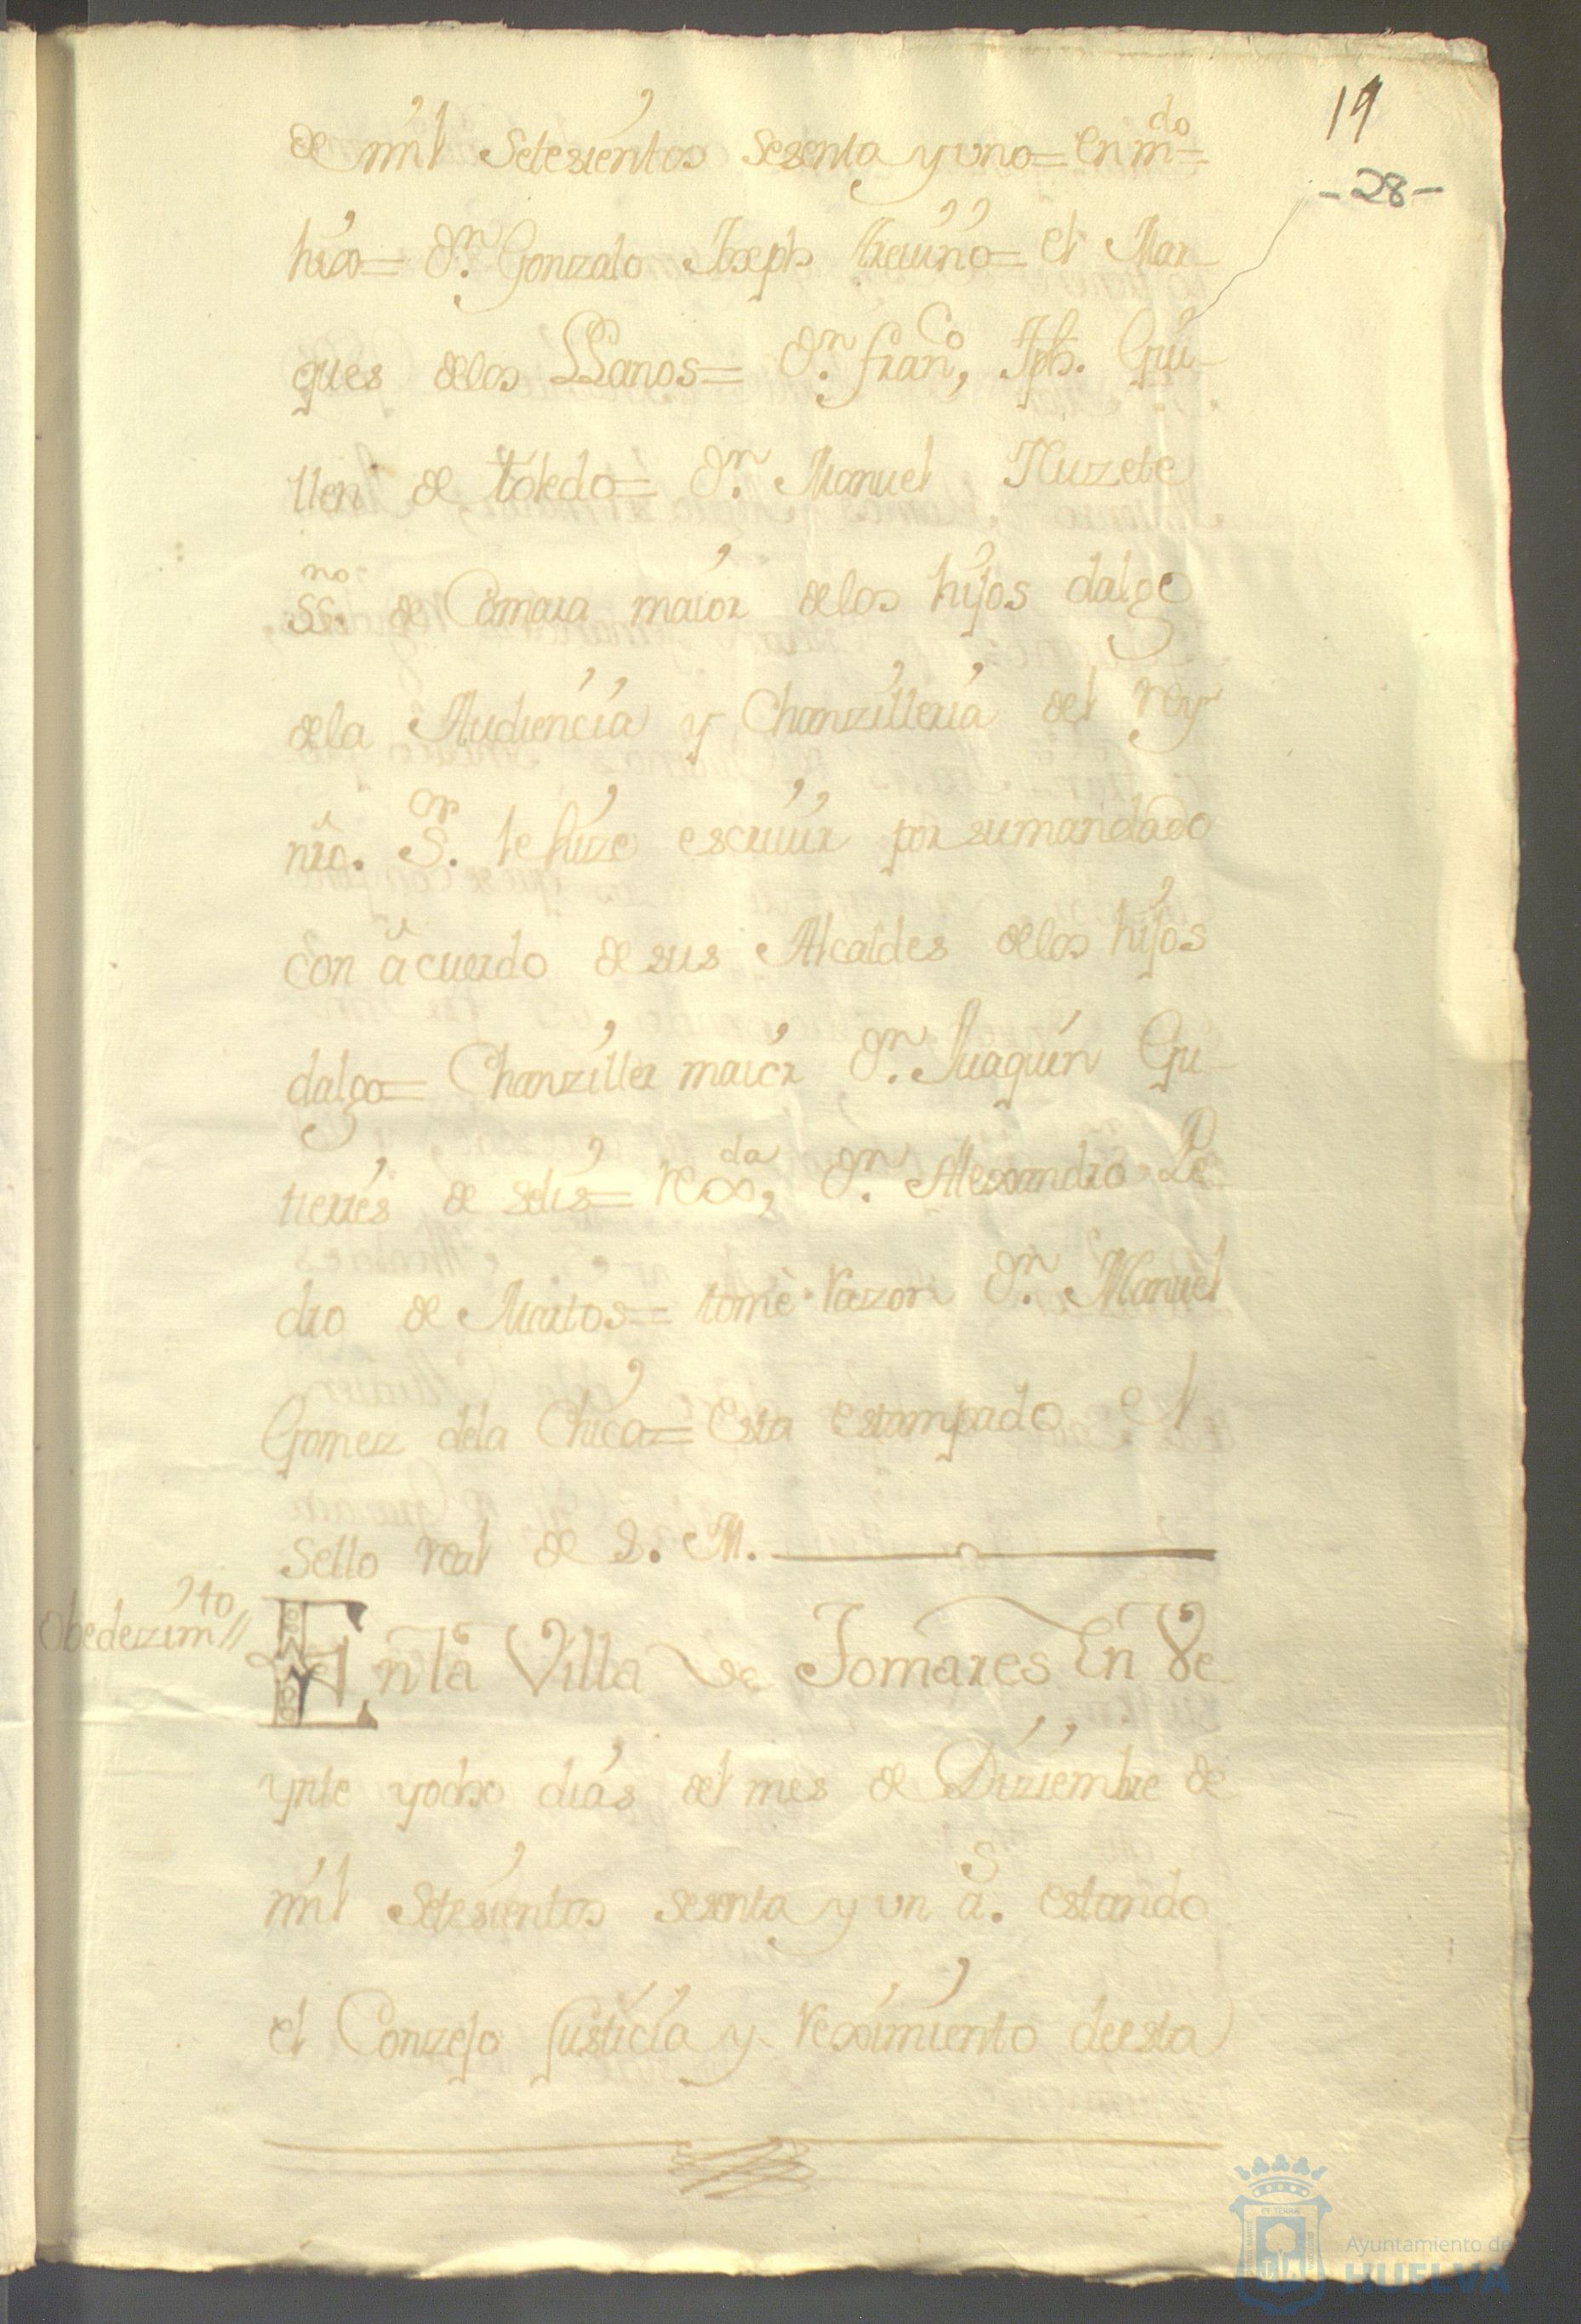 19
-28-
de mil Setesientos sesenta y uno= En m.do=
hizo= Dn. Gonzalo Joseph treuiño= El Mar-
ques delos LLanos= Dn. Franco, Jph. Gui-
llen de toledo= Dn. Manuel Nuzete
SS.no de Camara maior delos hijos dalgo
dela Audiencia y Chanzilleria del rey
nro. S.or le hize escriuir por sumandado
Con acuerdo de sus Alcaldes delos hijos
dalgo= Chanziller maior Dn. Juaquin Gu-
tierres de selis= rexda, Dn. Alexandro Pe-
dro de Martos= tomè razon Dn. Manuel
Gomez dela Chica= Esta estampado el
Sello real de S. M.
Obedezimto//
En la Villa de Tomares En Ve-
ynte yocho dias del mes de Diziembre de
mil Setesientos sesenta y un a.s estando
el Conzejo Justicia y reximiento deesta
Ayuntamiento de
HUELVA